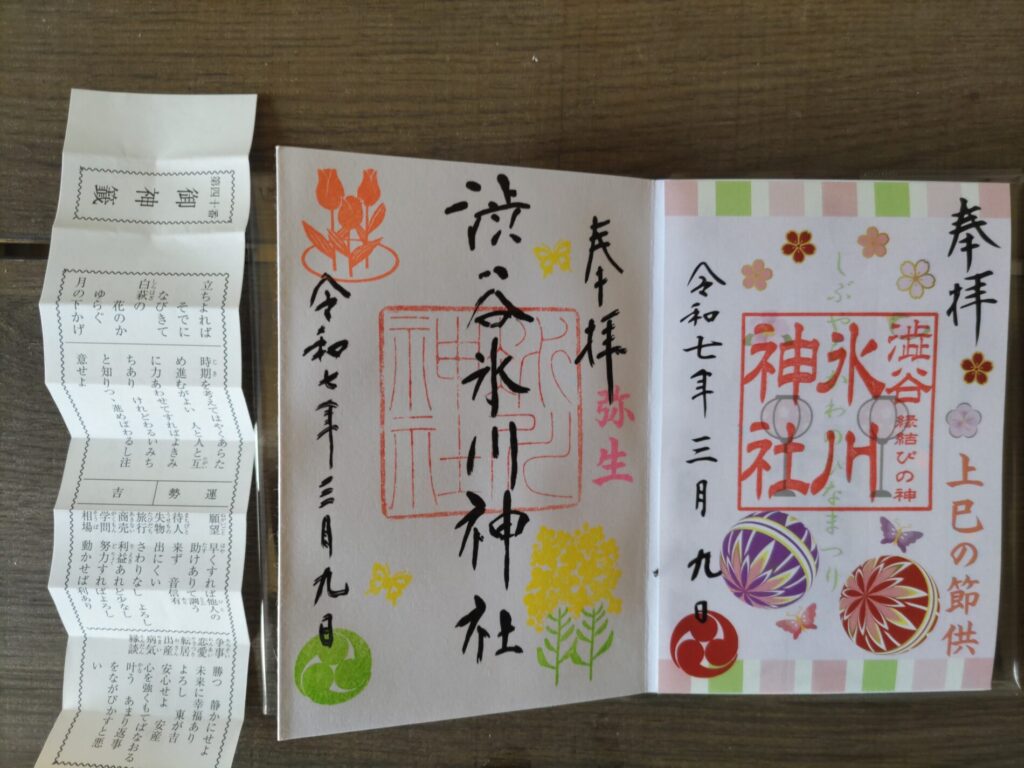 第四十番
御神籤
立ちよれば
そでに
なびきて
白萩の
花のか
ゆらぐ
月の下かげ
時期を考えてはやくあらた
め進むがよい 人と人と互
に力あわせてすればよきみ
ちあり けれどわるいみち
と知りつゝ進めばわるし注
意せよ
運勢
吉
願望 早くすれば他人の
助けありて調う
待人 来ず 音信有
失物 出にくい
旅行 さわりなし よろし
商売 利益あれど少なし
学問 努力すればよろし
相場 動かせば利あり
争事 勝つ 静かにせよ
恋愛 未来に幸福あり
転居 よろし 東が吉
出産 安心せよ 安産
病気 心を強くもてばなおる
縁談 叶う あまり返事
をながびかすと悪
い
奉拝
弥生
渋谷氷川神社
氷川
神社
令和七年三月九日
奉拝
上巳の節供
澁谷
縁結びの神
氷川
神社
しぶやひかわのひなまつり
令和七年三月九日